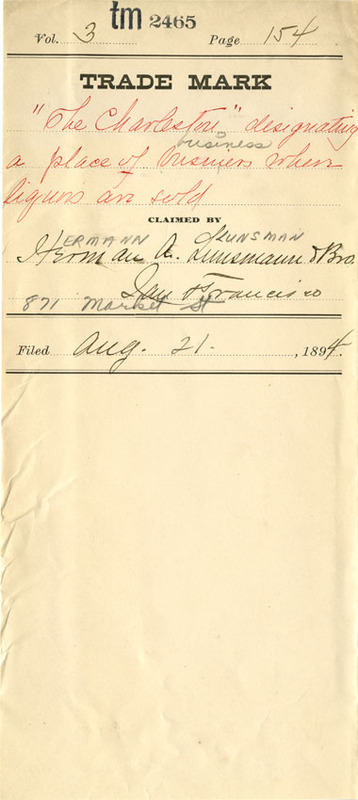 tm 2465
Vol. 3 Page 154
TRADE MARK
"The Charleston" designating
business
a place of business where
liquors are sold
CLAIMED BY
HERMANN LUNSMAN
Herman A. Lunsmann & Bro.
San Francisco
871 Market St
Filed Aug. 21. , 1894.